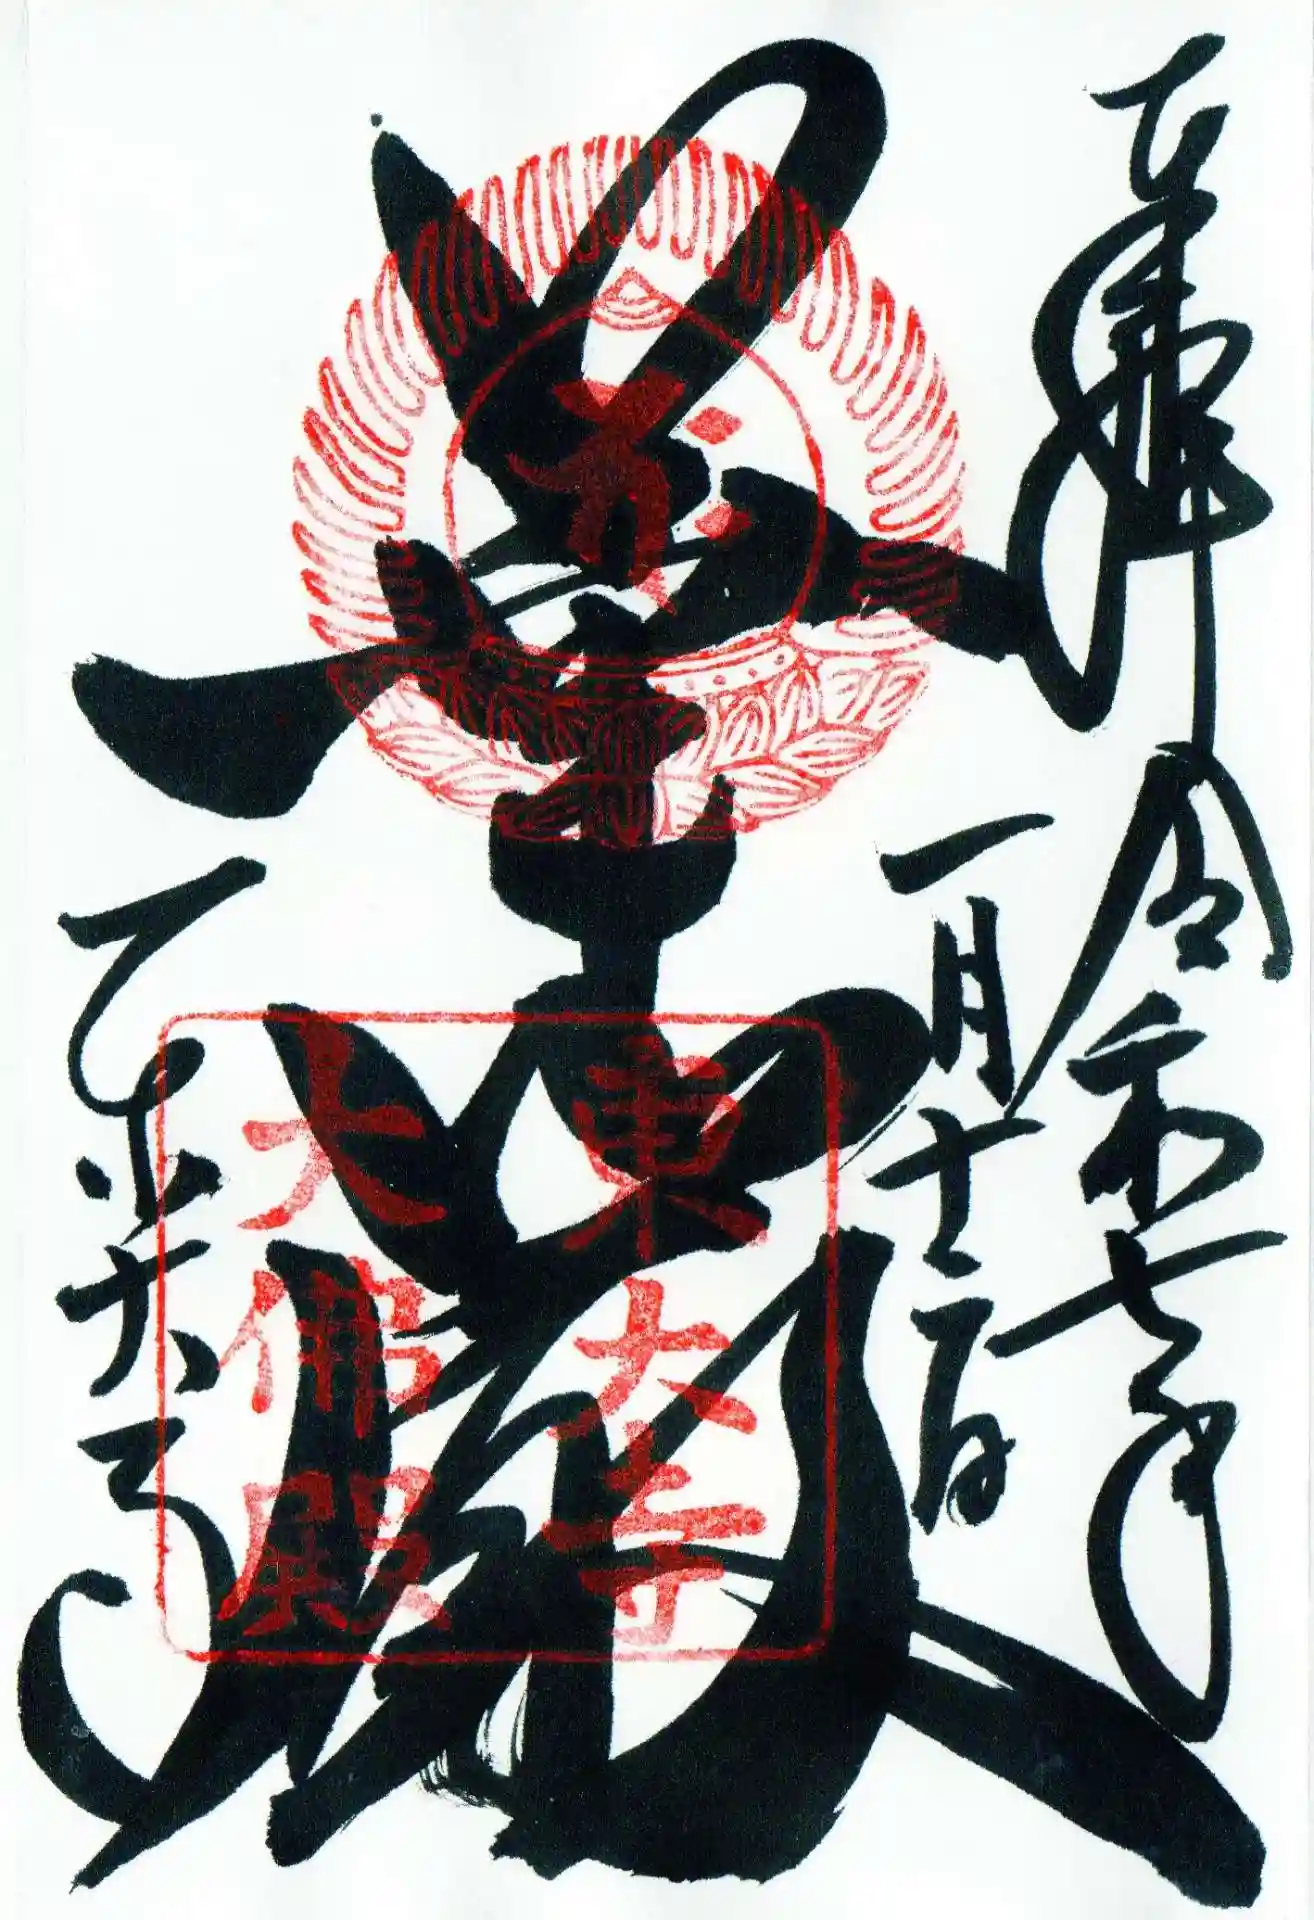 奉拝 令和七年
一月十二日
華嚴
東大寺
東大寺
大佛殿